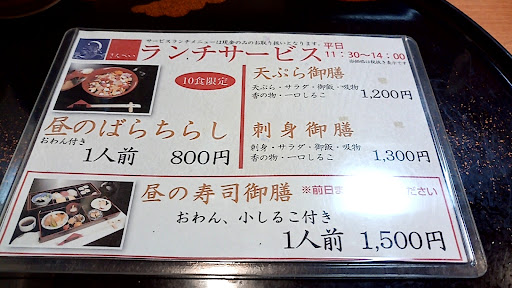 サービスランチメニューは現金のみのお取り扱いとなります。
さんぺい
ランチサービス
平日
11:30〜14:00
10食限定
天ぷら御膳
天ぷら・サラダ・御飯・吸物
香の物・一口しるこ
1,200円
昼のばらちらし
おわん付き
1人前 800円
刺身御膳
刺身・サラダ・御飯・吸物
香の物・一口しるこ
1,300円
昼の寿司御膳
※前日ま ださい
おわん、小しるこ付き
1人前 1,500円